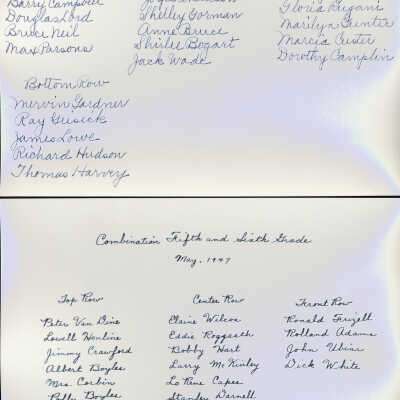 Barry Campbell
Douglas Lord
Bruce Neil
Max Parsons
Shelley Gorman
Anne Bruce
Shirlee Bogart
Jack Wade
Marilyn Gunter
Marcia Custer
Dorothy Camplin
Bottom Row
Mervin Gardner
Ray Grisick
James Lowe
Richard Hudson
Thomas Harvey
Combination Fifth and Sixth Grade
May, 1947
Top Row
Peter Van Dine
Lowell Henline
Jimmy Crawford
Albert Boyles
Mrs. Corbin
Boyles
Center Row
Elaine Wilcox
Eddie Roggasth
Bobby Hart
Larry McKinley
La Rene Capes
Stanley Darnell
Front Row
Ronald Frizell
Rolland Adams
John
Dick White